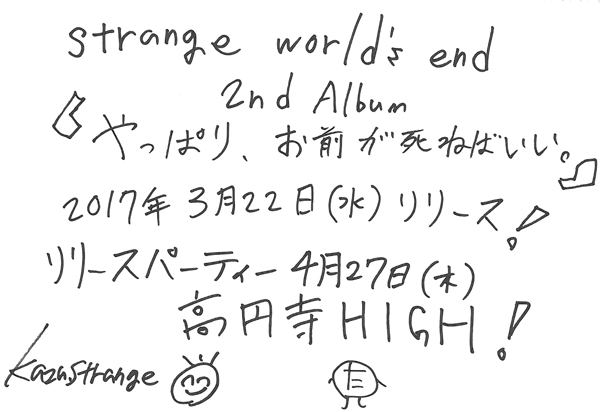 strange world's end
2nd Album
『やっぱり、お前が死ねばいい。』
2017年3月22日(水)リリース!
リリースパーティー4月27日(木)
高円寺HIGH!
Kazu,Strange